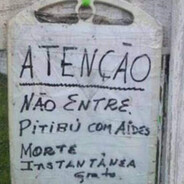 ATENÇÃO
NÃO ENTRE
PITIBÚ COM AÍDES
MORTE
INSTANTÂNEA
Grato.